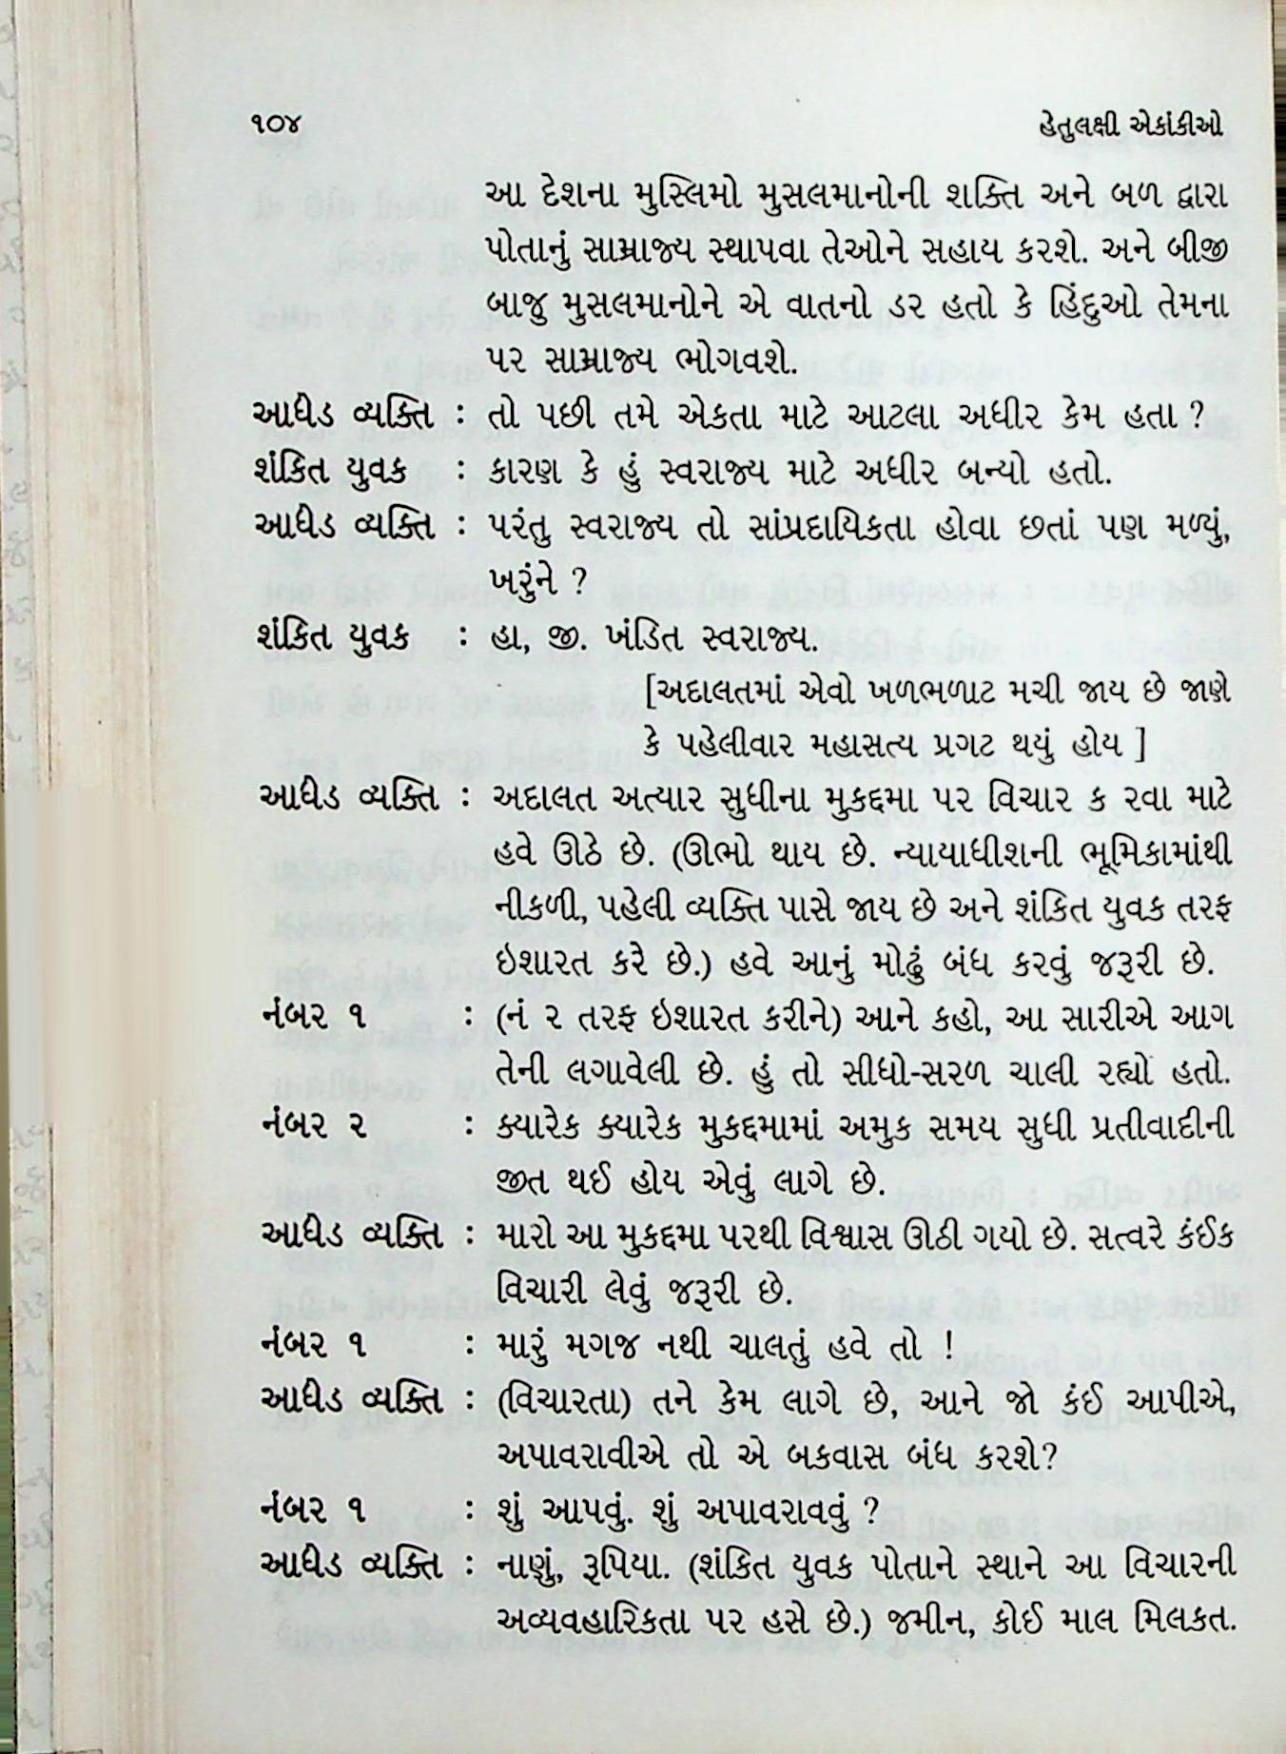 ૧૦૪ હેતુલક્ષી એકાંકીઓ
આ દેશના મુસ્લિમો મુસલમાનોની શક્તિ અને બળ દ્વારા
પોતાનું સામ્રાજ્ય સ્થાપવા તેઓને સહાય કરશે. અને બીજી
બાજુ મુસલમાનોને એ વાતનો ડર હતો કે હિંદુઓ તેમના
પર સામ્રાજ્ય ભોગવશે.
આધેડ વ્યક્તિ : તો પછી તમે એકતા માટે આટલા અધીર કેમ હતા ?
શંકિત યુવક : કારણ કે હું સ્વરાજ્ય માટે અધીર બન્યો હતો.
આધેડ વ્યક્તિ : પરંતુ સ્વરાજ્ય તો સાંપ્રદાયિકતા હોવા છતાં પણ મળ્યું,
ખરુંને ?
શંકિત યુવક : હા, જી. ખંડિત સ્વરાજ્ય.
[અદાલતમાં એવો ખળભળાટ મચી જાય છે જાણે
કે પહેલીવાર મહાસત્ય પ્રગટ થયું હોય ]
આધેડ વ્યક્તિ : અદાલત અત્યાર સુધીના મુકદ્દમા પર વિચાર ક રવા માટે
હવે ઊઠે છે. (ઊભો થાય છે. ન્યાયાધીશની ભૂમિકામાંથી
નીકળી, પહેલી વ્યક્તિ પાસે જાય છે અને શંકિત યુવક તરફ
ઇશારત કરે છે.) હવે આનું મોઢું બંધ કરવું જરૂરી છે.
નંબર ૧ : (નં ૨ તરફ ઇશારત કરીને) આને કહો, આ સારીએ આગ
તેની લગાવેલી છે. હું તો સીધો-સરળ ચાલી રહ્યો હતો.
નંબર ૨ : ક્યારેક ક્યારેક મુકદ્દમામાં અમુક સમય સુધી પ્રતીવાદીની
જીત થઈ હોય એવું લાગે છે.
આધેડ વ્યક્તિ : મારો આ મુકદ્દમા પરથી વિશ્વાસ ઊઠી ગયો છે. સત્વરે કંઈક
વિચારી લેવું જરૂરી છે.
નંબર ૧ : મારું મગજ નથી ચાલતું હવે તો !
આધેડ વ્યક્તિ : (વિચારતા) તને કેમ લાગે છે, આને જો કંઈ આપીએ,
અપાવરાવીએ તો એ બકવાસ બંધ કરશે?
નંબર ૧ : શું આપવું. શું અપાવરાવવું ?
આધેડ વ્યક્તિ : નાણું, રૂપિયા. (શંકિત યુવક પોતાને સ્થાને આ વિચારની
અવ્યવહારિકતા પર હસે છે.) જમીન, કોઈ માલ મિલકત.